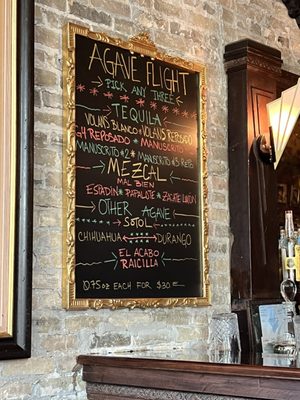 AGAVE FLIGHT
PICK ANY THREE
TEQUILA
VOLANS BLANCO * VOLANS REPOSADO
REPOSADO * MANUSCRITO
MANUSCRITO #2 * MANUSCRITO #3
MEZCAL
MAL BIEN
ESPADIN * PAPALOTE * ZACATE LIMON
OTHER AGAVE
SOTOL
CHIHUAHUA DURANGO
EL ACABO
RAICILLA
0.75oz EACH FOR $30